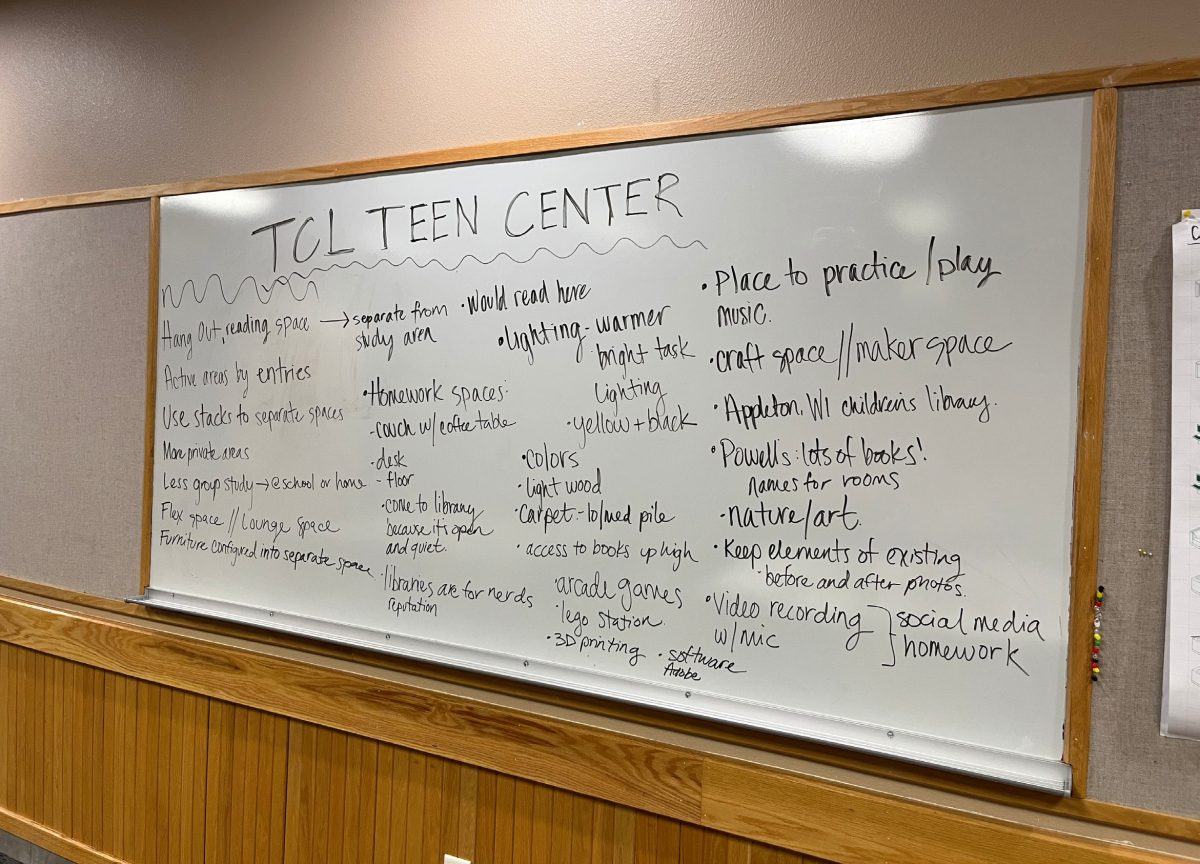 TCL TEEN CENTER
Hang Out, reading space → separate from
study area
Active areas by entries
Use stacks to separate spaces
More private areas
Less group study → @school or home
Flex space // Lounge space
Furniture configured into separate space
• Would read here
• Homework spaces:
- couch w/ coffee table
- desk
- floor
• come to library
because it's open
and quiet.
• libraries are for nerds
reputation
• lighting - warmer
bright task
Lighting
• yellow + black
• colors
• light wood
• carpet - lo/med pile
• access to books up high
• arcade games
• lego station.
• 3D printing
• software
Adobe
• Place to practice / play
music.
• craft space // maker space
• Appleton, WI children's library.
• Powell's: lots of books!
names for rooms
- nature/art.
• Keep elements of existing
• before and after photos.
• Video recording
w/mic
social media
homework
C